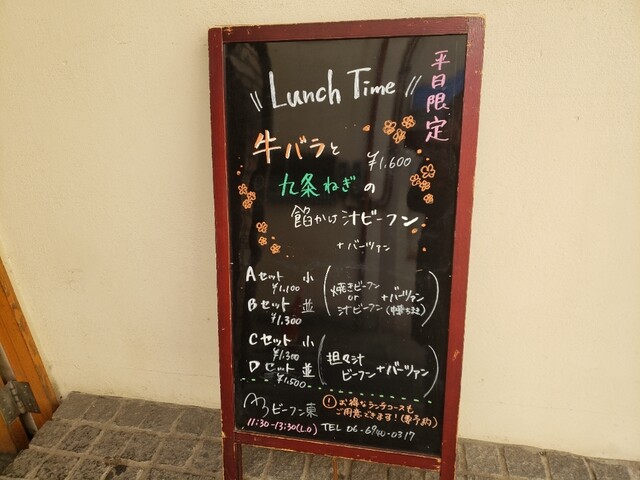 平日限定
\\ Lunch Time //
牛バラと
¥1,600
九条ねぎの
餡かけ汁ビーフン
+バーツァン
Aセット 小
¥1,100
Bセット 並
¥1,300
(焼きビーフン
or +バーツァン
汁ビーフン (中華ちまき))
Cセット 小
¥1,300
Dセット 並
¥1,500
(担々汁
ビーフン+バーツァン)
ビーフン東
! お得なランチコースも
ご用意できます!(要予約)
11:30-13:30(L.O)
TEL 06-6940-0317